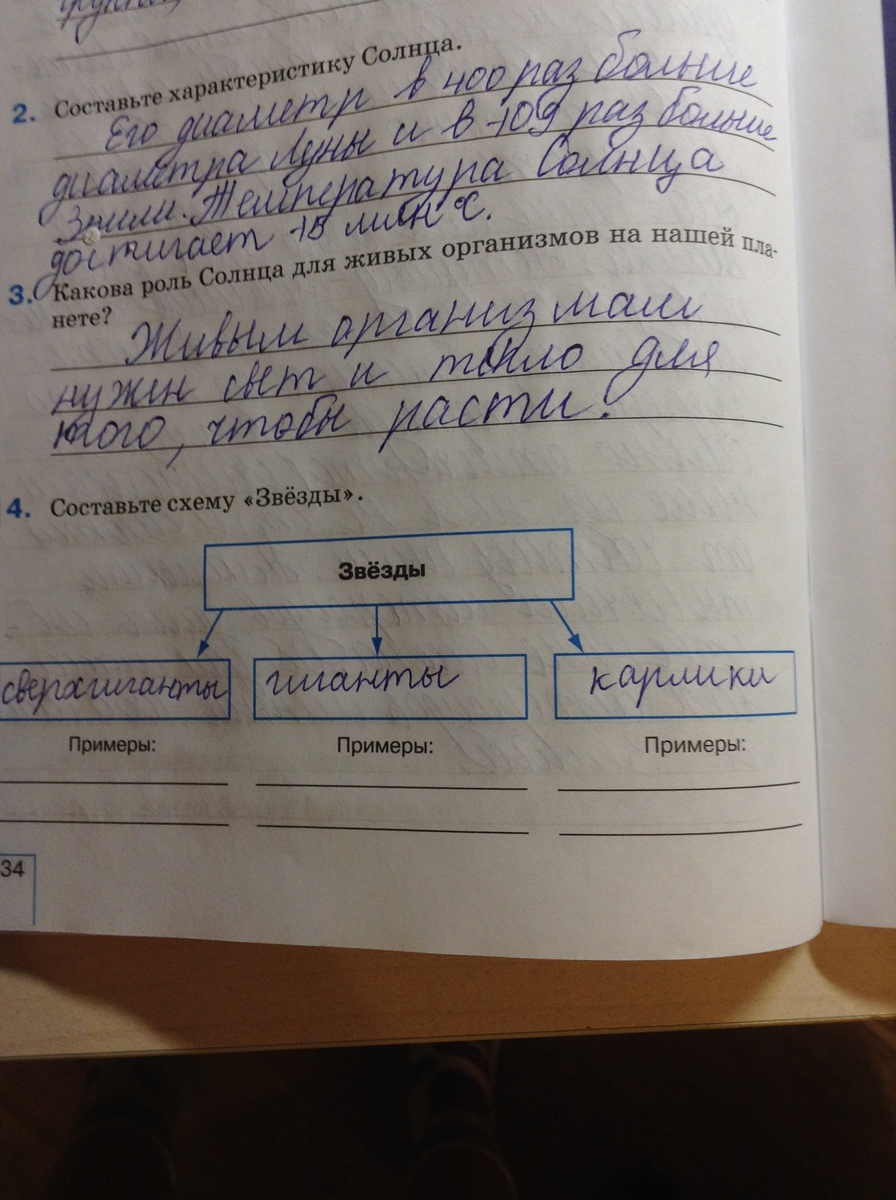 2. Составьте характеристику Солнца.
Его диаметр в 400 раз больше
диаметра Луны и в 109 раз больше
Земли. Температура Солнца
достигает 15 млн °С.
3. Какова роль Солнца для живых организмов на нашей пла-
нете?
Живым организмам
нужен свет и тепло для
того, чтобы расти.
4. Составьте схему «Звёзды».
Звёзды
сверхгиганты гиганты карлики
Примеры: Примеры: Примеры:
34